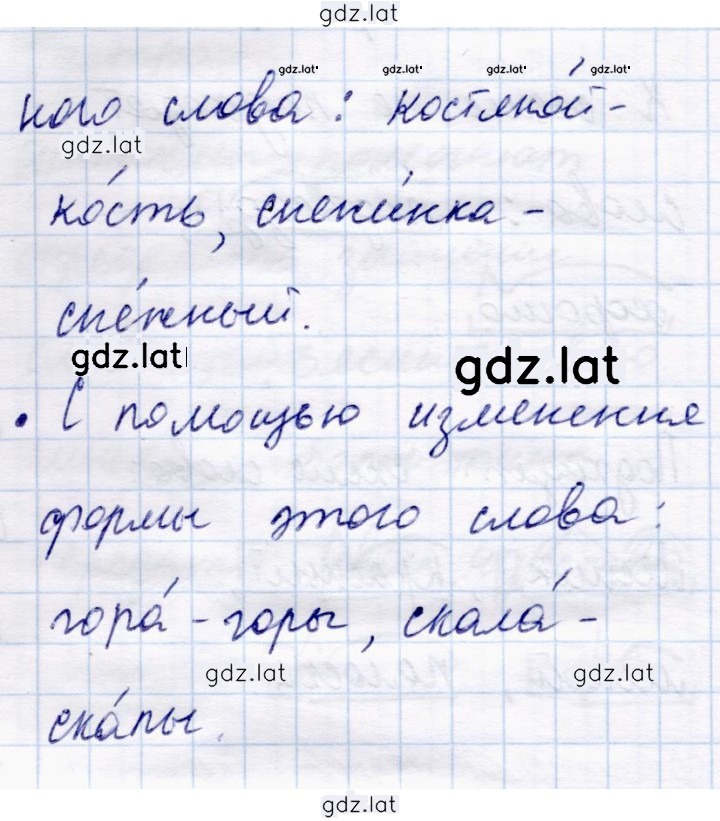 gdz.lat
gdz.lat gdz.lat gdz.lat gdz.lat
ного слова: костяно́й -
gdz.lat
ко́сть, снежи́нка -
сне́жный.
gdz.lat gdz.lat
• С помощью изменения
формы этого слова:
гора́ - горы, скала́ -
gdz.lat gdz.lat
ска́лы.
gdz.lat